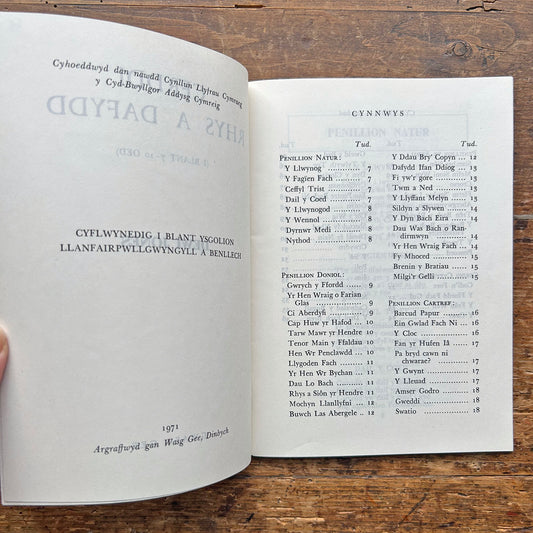 Cyhoeddwyd dan nawdd Cynllun Llyfrau Cymraeg
y Cyd-Bwyllgor Addysg Cymreig
CYFLWYNEDIG I BLANT YSGOLION
LLANFAIRPWLLGWYNGYLL A BENLLECH
1971
Argraffwyd gan Wasg Gee, Dinbych
CYNNWYS
Tud.
PENILLION NATUR:
Y Llwynog ... 7
Y Fagïen Fach ... 7
Ceffyl Trist ... 7
Dail y Coed ... 7
Y Llwynogod ... 8
Y Wennol ... 8
Dynwr Medi ... 8
Nythod ... 8
PENILLION DONIOL:
Gwrych y Ffordd ... 9
Yr Hen Wraig o Farian
Glas ... 9
Ci Aberdyfi ... 9
Cap Huw yr Hafod ... 10
Tarw Mawr yr Hendre ... 10
Tenor Main y Ffaldau ... 10
Hen Ŵr Penclawdd ... 10
Llygoden Fach ... 10
Yr Hen Ŵr Bychan ... 11
Dau Lo Bach ... 11
Rhys a Siôn yr Hendre ... 11
Mochyn Llanllyfni ... 11
Buwch Las Abergele .. 12
Tud.
Y Ddau Bry' Copyn ... 12
Dafydd Ifan Ddiog ... 12
Fi yw'r gore ... 13
Twm a Ned ... 13
Y Llyffant Melyn ... 13
Sildyn a Slywen ... 13
Y Dyn Bach Eira ... 14
Dau Was Bach o Ran-
dirmwyn ... 14
Yr Hen Wraig Fach ... 14
Fy Mhoced ... 15
Brenin y Bratiau ... 15
Milgi'r Gelli ... 15
PENILLION CARTREF:
Barcud Papur ... 16
Ein Gwlad Fach Ni ... 16
Y Cloc ... 16
Fan yr Hufen Iâ ... 16
Pa bryd cawn ni
chwarae? ... 17
Y Gwynt ... 17
Y Lleuad ... 17
Amser Godro ... 18
Gweddi ... 18
Swatio ... 18